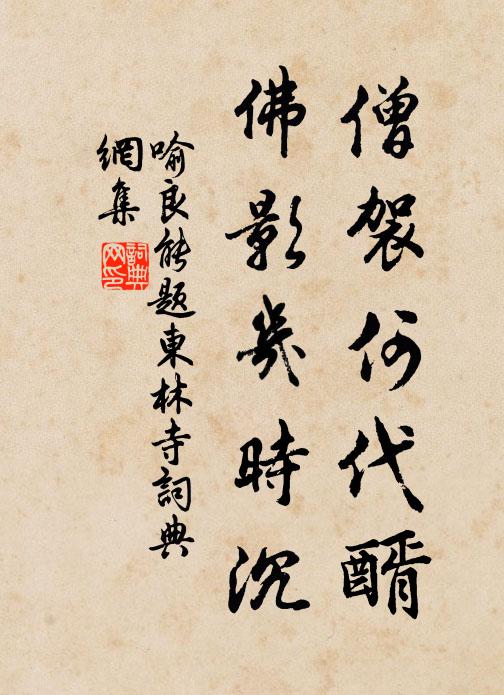 僧袈何代醑
佛影幾時沉
喻良能題東林寺詞典
網集
詞典
网印